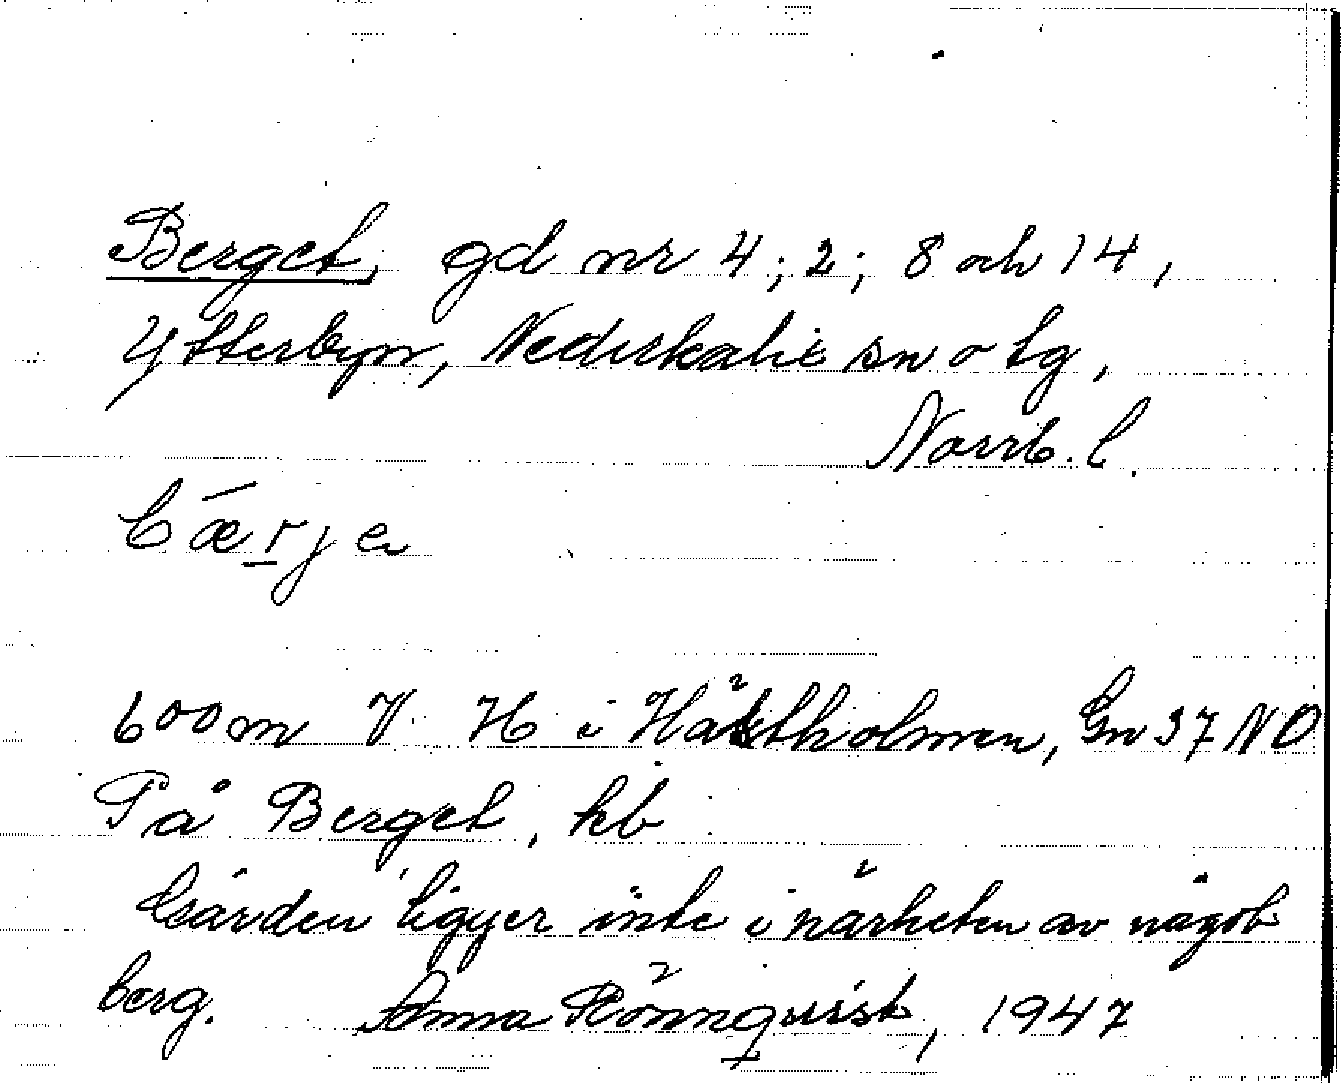 Berget, gd nr 4; 2; 8 och 14,
Ytterbyn, Nederkalix sn o tg,
Norrb. l.
bǣrje
600 m V H i Hästholmen, Gn 37 NO
På Berget, kb
Gården ligger inte i närheten av något
berg. Anna Rönnqvist, 1947